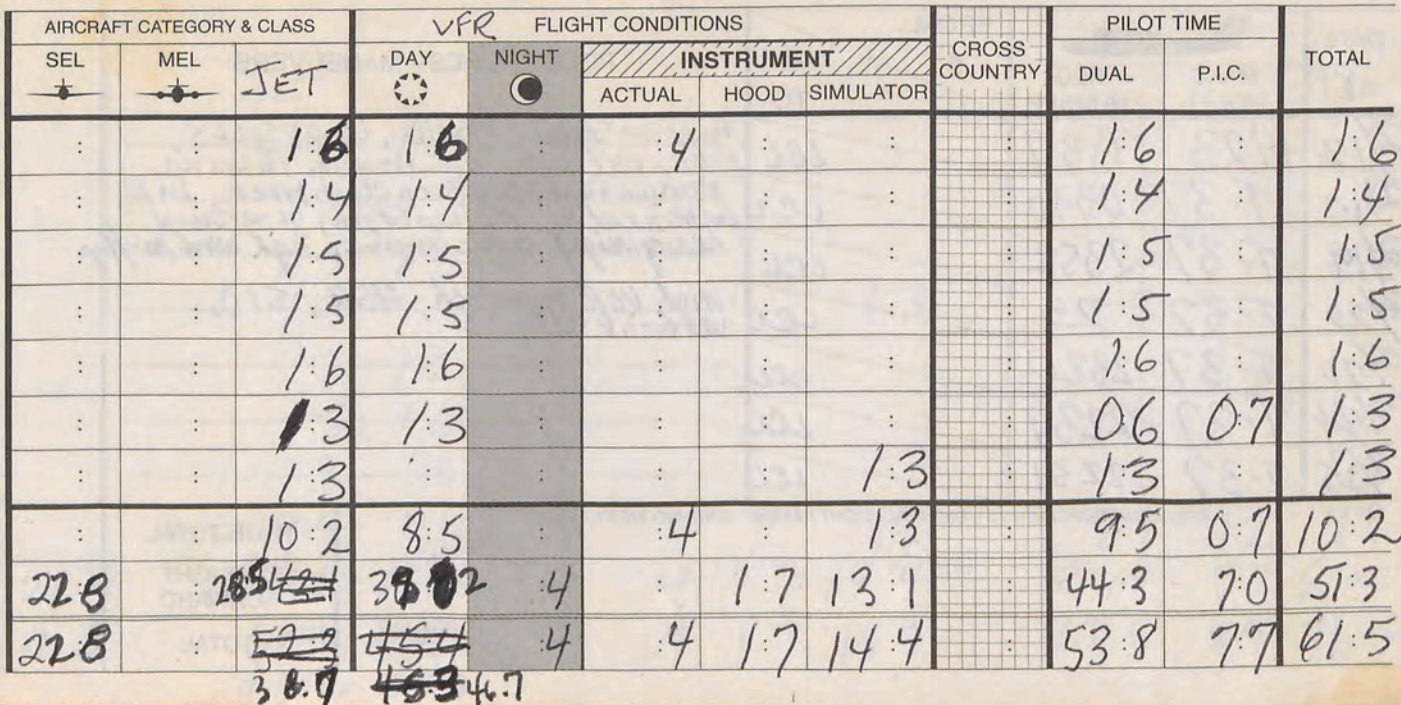 AIRCRAFT CATEGORY & CLASS VFR FLIGHT CONDITIONS CROSS COUNTRY PILOT TIME TOTAL
SEL MEL JET DAY NIGHT INSTRUMENT DUAL P.I.C.
ACTUAL HOOD SIMULATOR
1:6 1:6 : :4 1:6 1:6
1:4 1:4 1:4 1:4
1:5 1:5 1:5 1:5
1:5 1:5 1:5 1:5
1:6 1:6 1:6 1:6
1:3 1:3 0:6 0:7 1:3
1:3 1:3 1:3 1:3
10:2 8:5 :4 1:3 9:5 0:7 10:2
22:8 28:5 :4 1:7 13:1 44:3 7:0 51:3
22:8 :4 :4 1:7 14:4 53:8 7:7 61:5
46.7